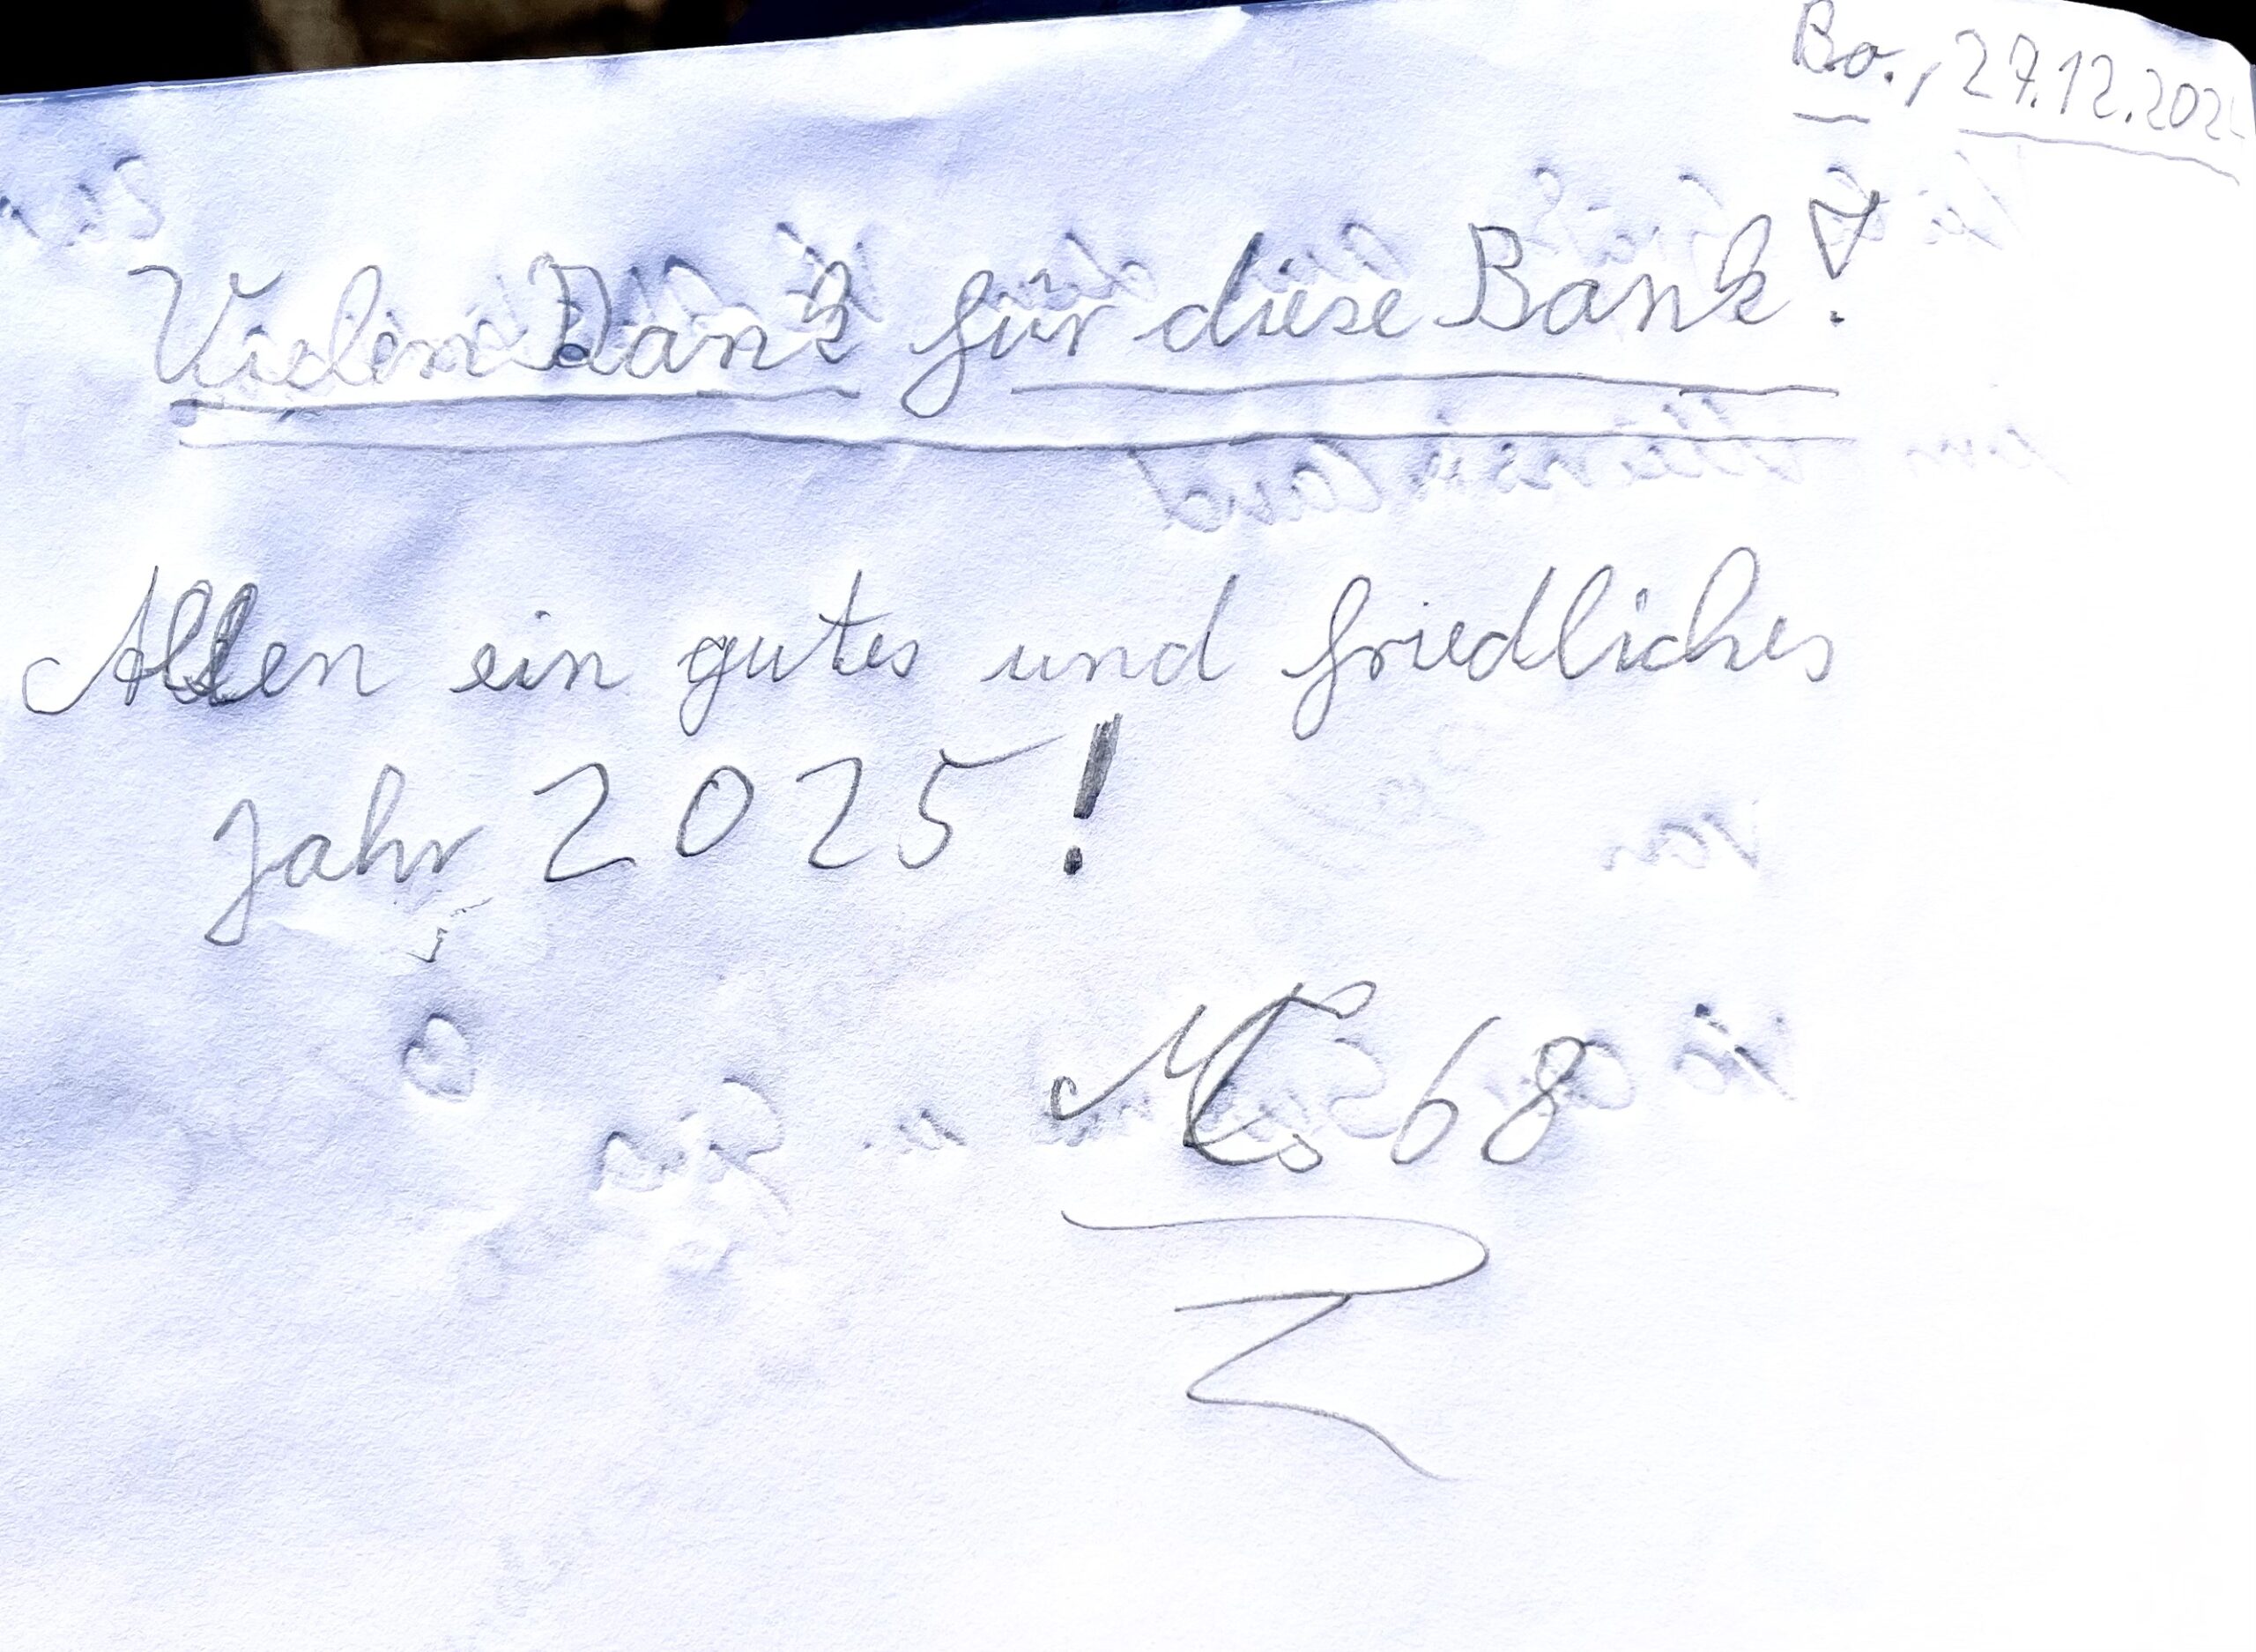 Bo., 27.12.202
Vielen Dank für diese Bank!
Allen ein gutes und friedliches
Jahr 2025!
68